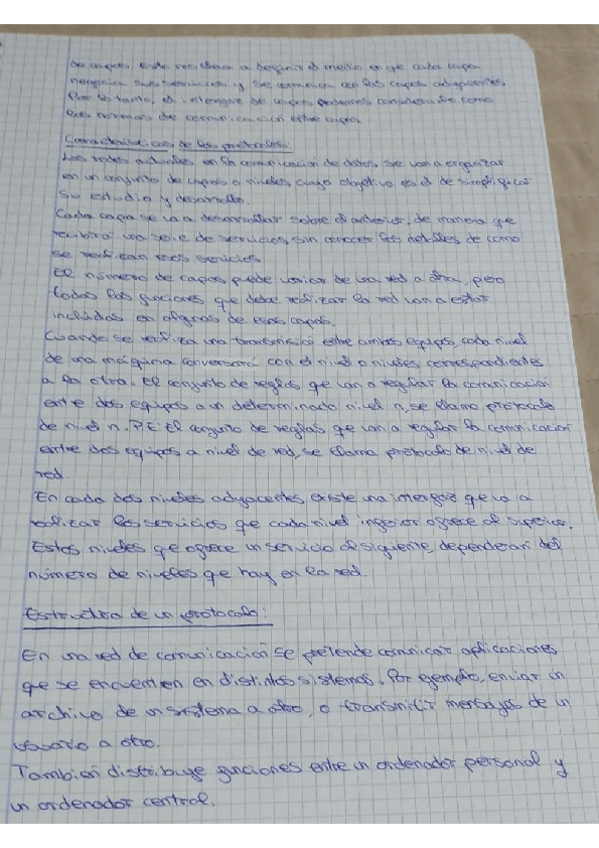 de capas, esto nos lleva a definir el medio en que cada capa
negocia sus servicios y se comunica con las capas adyacentes.
Por lo tanto, el interfaz de capas podemos considerarlo como
las normas de comunicación entre capas.
Características de los protocolos:
Las redes actuales en la comunicación de datos se van a organizar
en un conjunto de capas o niveles cuyo objetivo es el de simplificar
su estudio y desarrollo.
Cada capa se va a desarrollar sobre el anterior, de manera que
recibirá una serie de servicios sin conocer los detalles de como
se realizan esos servicios.
El número de capas puede variar de una red a otra, pero
todas las funciones que debe realizar la red van a estar
incluidas en algunas de esas capas.
Cuando se realiza una transmisión entre ambos equipos, cada nivel
de una máquina conversará con el nivel o niveles correspondientes
a la otra. El conjunto de reglas que van a regular la comunicación
entre dos equipos a un determinado nivel n, se llama protocolo
de nivel n. P.E: El conjunto de reglas que van a regular la comunicación
entre dos equipos a nivel de red, se llama protocolo de nivel de
red.
En cada dos niveles adyacentes existe una interfaz que va a
realizar los servicios que cada nivel inferior ofrece al superior.
Estos niveles que ofrece un servicio al siguiente, dependerán del
número de niveles que hay en la red.
Estructura de un protocolo:
En una red de comunicación se pretende comunicar aplicaciones
que se encuentren en distintos sistemas. Por ejemplo, enviar un
archivo de un sistema a otro, o transmitir mensajes de un
usuario a otro.
También distribuye funciones entre un ordenador personal y
un ordenador central.